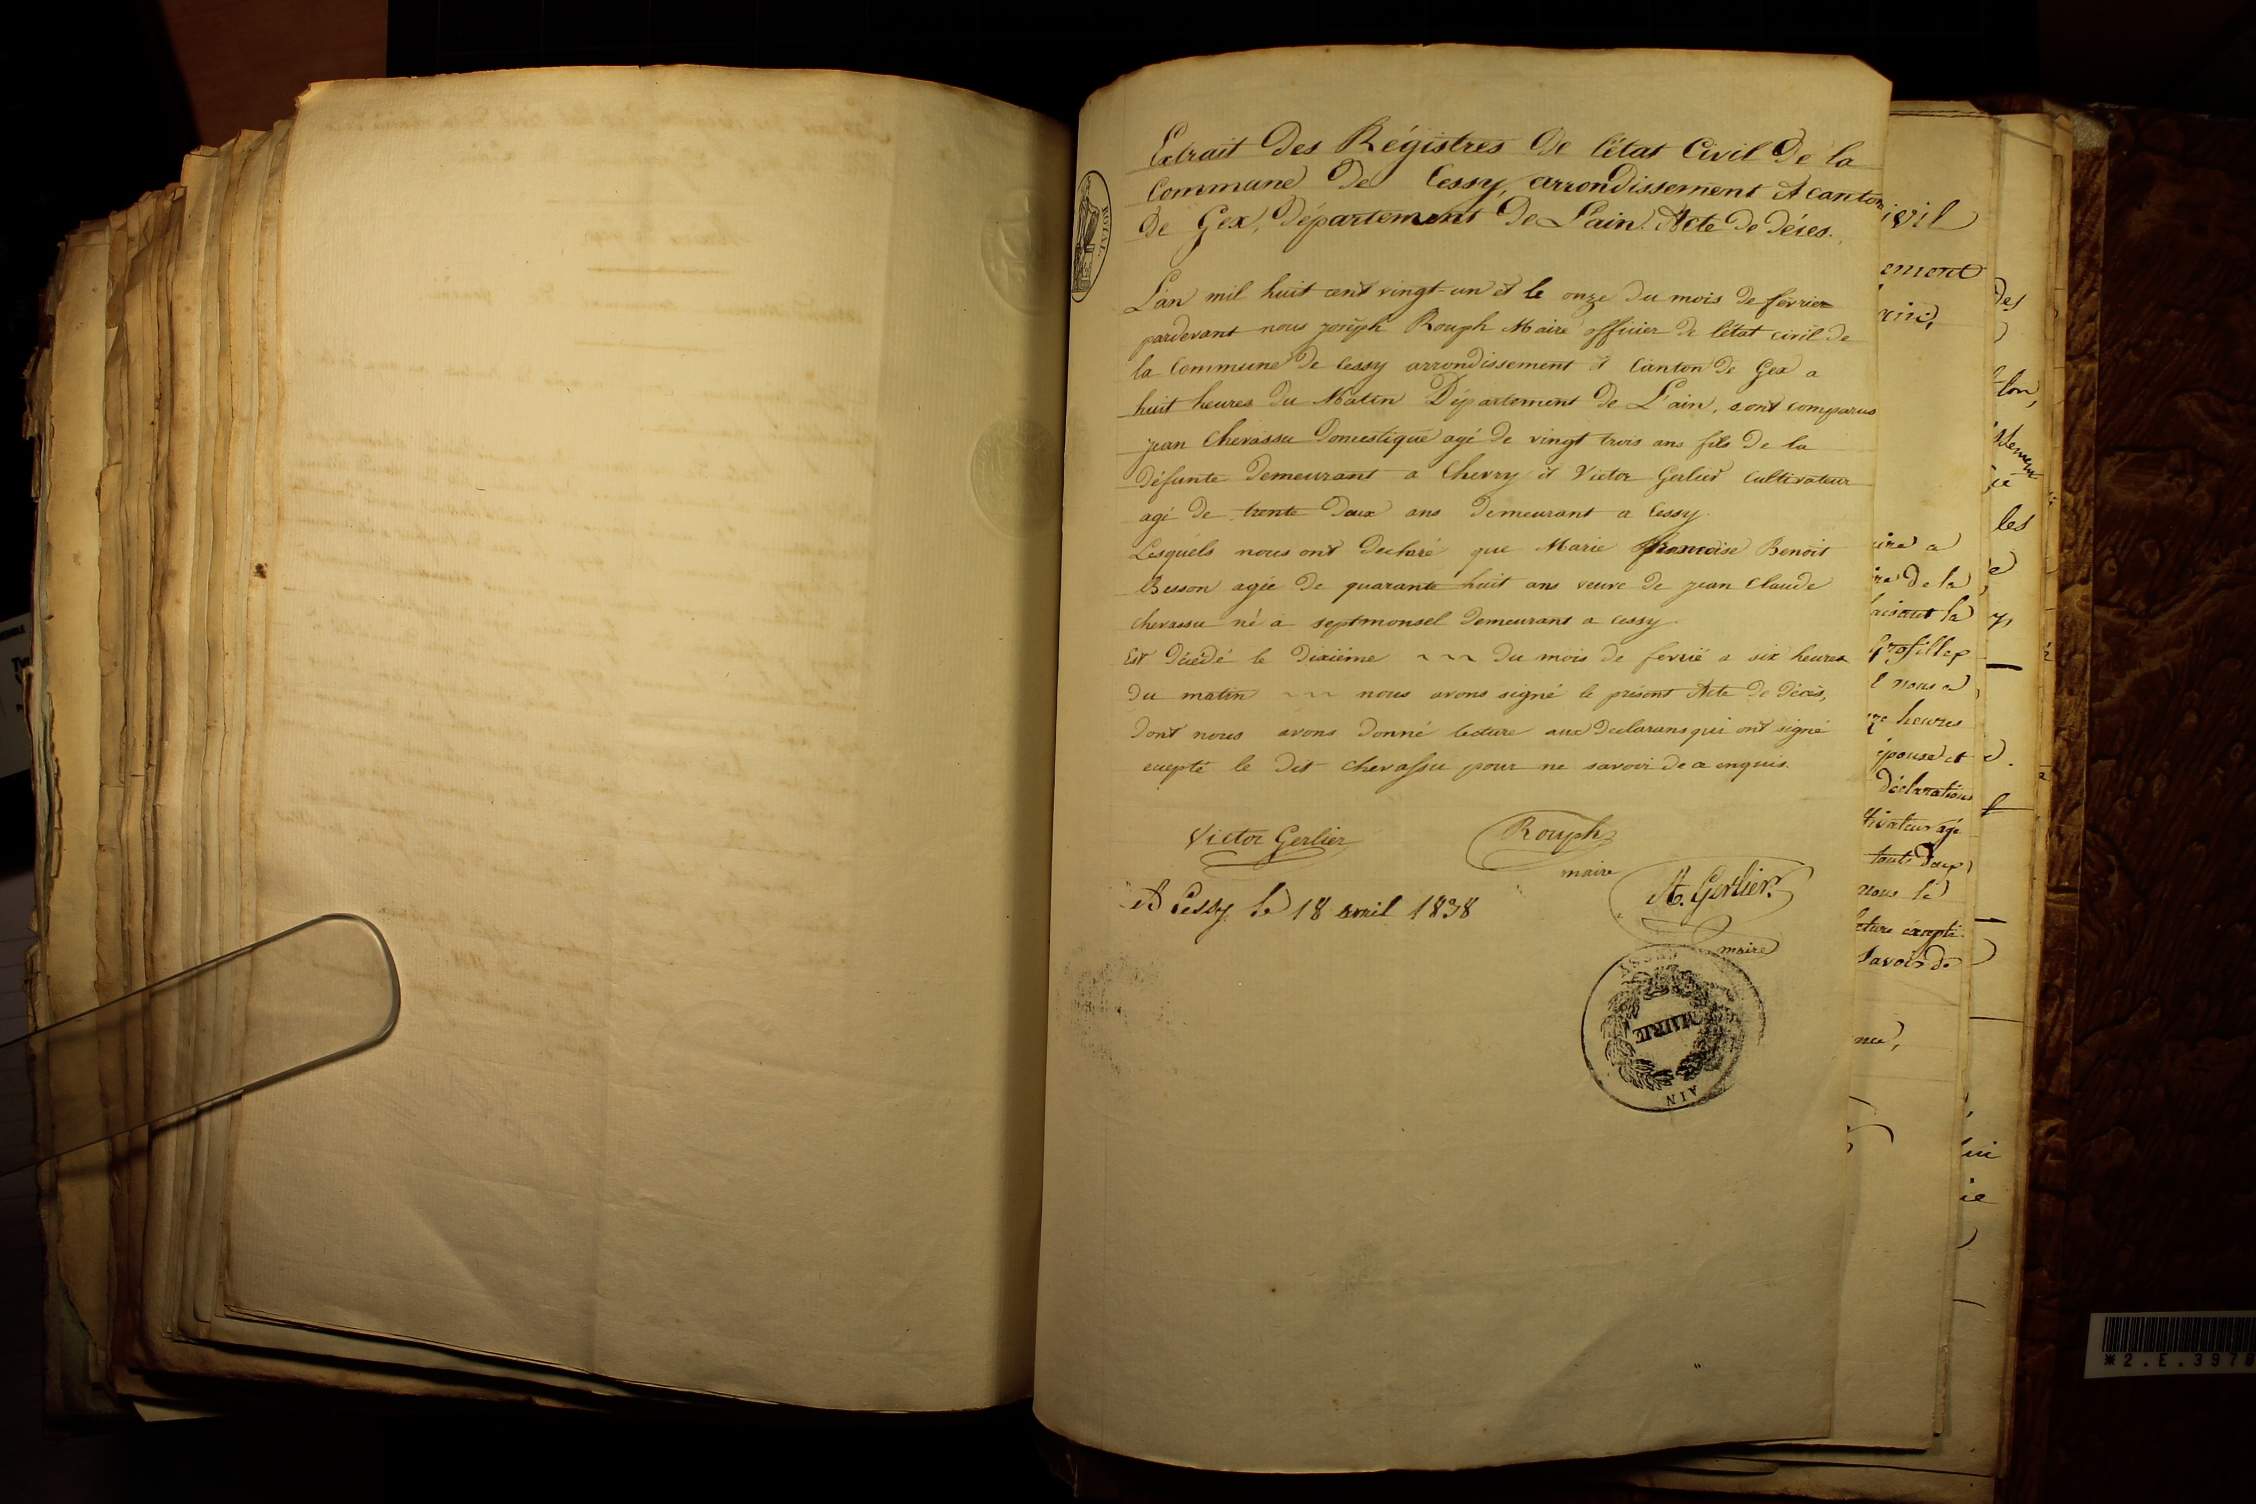 Extrait Des Régistres De l'état Civil De la
Commune De Cessy, arrondissement Et canton
De Gex, Département De L'ain. Acte De Décés.
ROYAL
L'an mil huit cent vingt-un et le onze Du mois De fevrier
pardevant nous joseph Rouph Maire officier De l'état civil De
la Commune De Cessy arrondissement et Canton De Gex a
huit heures Du Matin Département De L'ain, sont comparus
jean Chevassu Domestique agé De vingt trois ans fils De la
Défunte Demeurant a Chevry et Victor Gerlier Cultivateur
agé De trente Deux ans Demeurant a Cessy.
Lesquels nous ont Declaré que Marie françoise Benoit
Besson agée De quarante huit ans veuve De jean Claude
Chevassu né a septmonsel Demeurant a Cessy
Est Décédé le Dixiéme ~~~ Du mois De fevrié a six heures
Du matin ~~~ nous avons signé le présent Acte De Décès,
Dont nous avons Donné lecture aux Declarans qui ont signé
exepté le Dit Chevassu pour ne savoir De ce enquis.
Victor Gerlier
Rouph
maire
A Cessy le 18 avril 1838
A. Gerlier
maire
CESSY
MAIRIE
AIN
ivil
ement
ain,
ire a
ire De la
faisant la
nous a
heures
épouse et
Déclarations
tivateur agé
nous le
ecture éxcepté
Savoir De
des
les
*2.E.3978